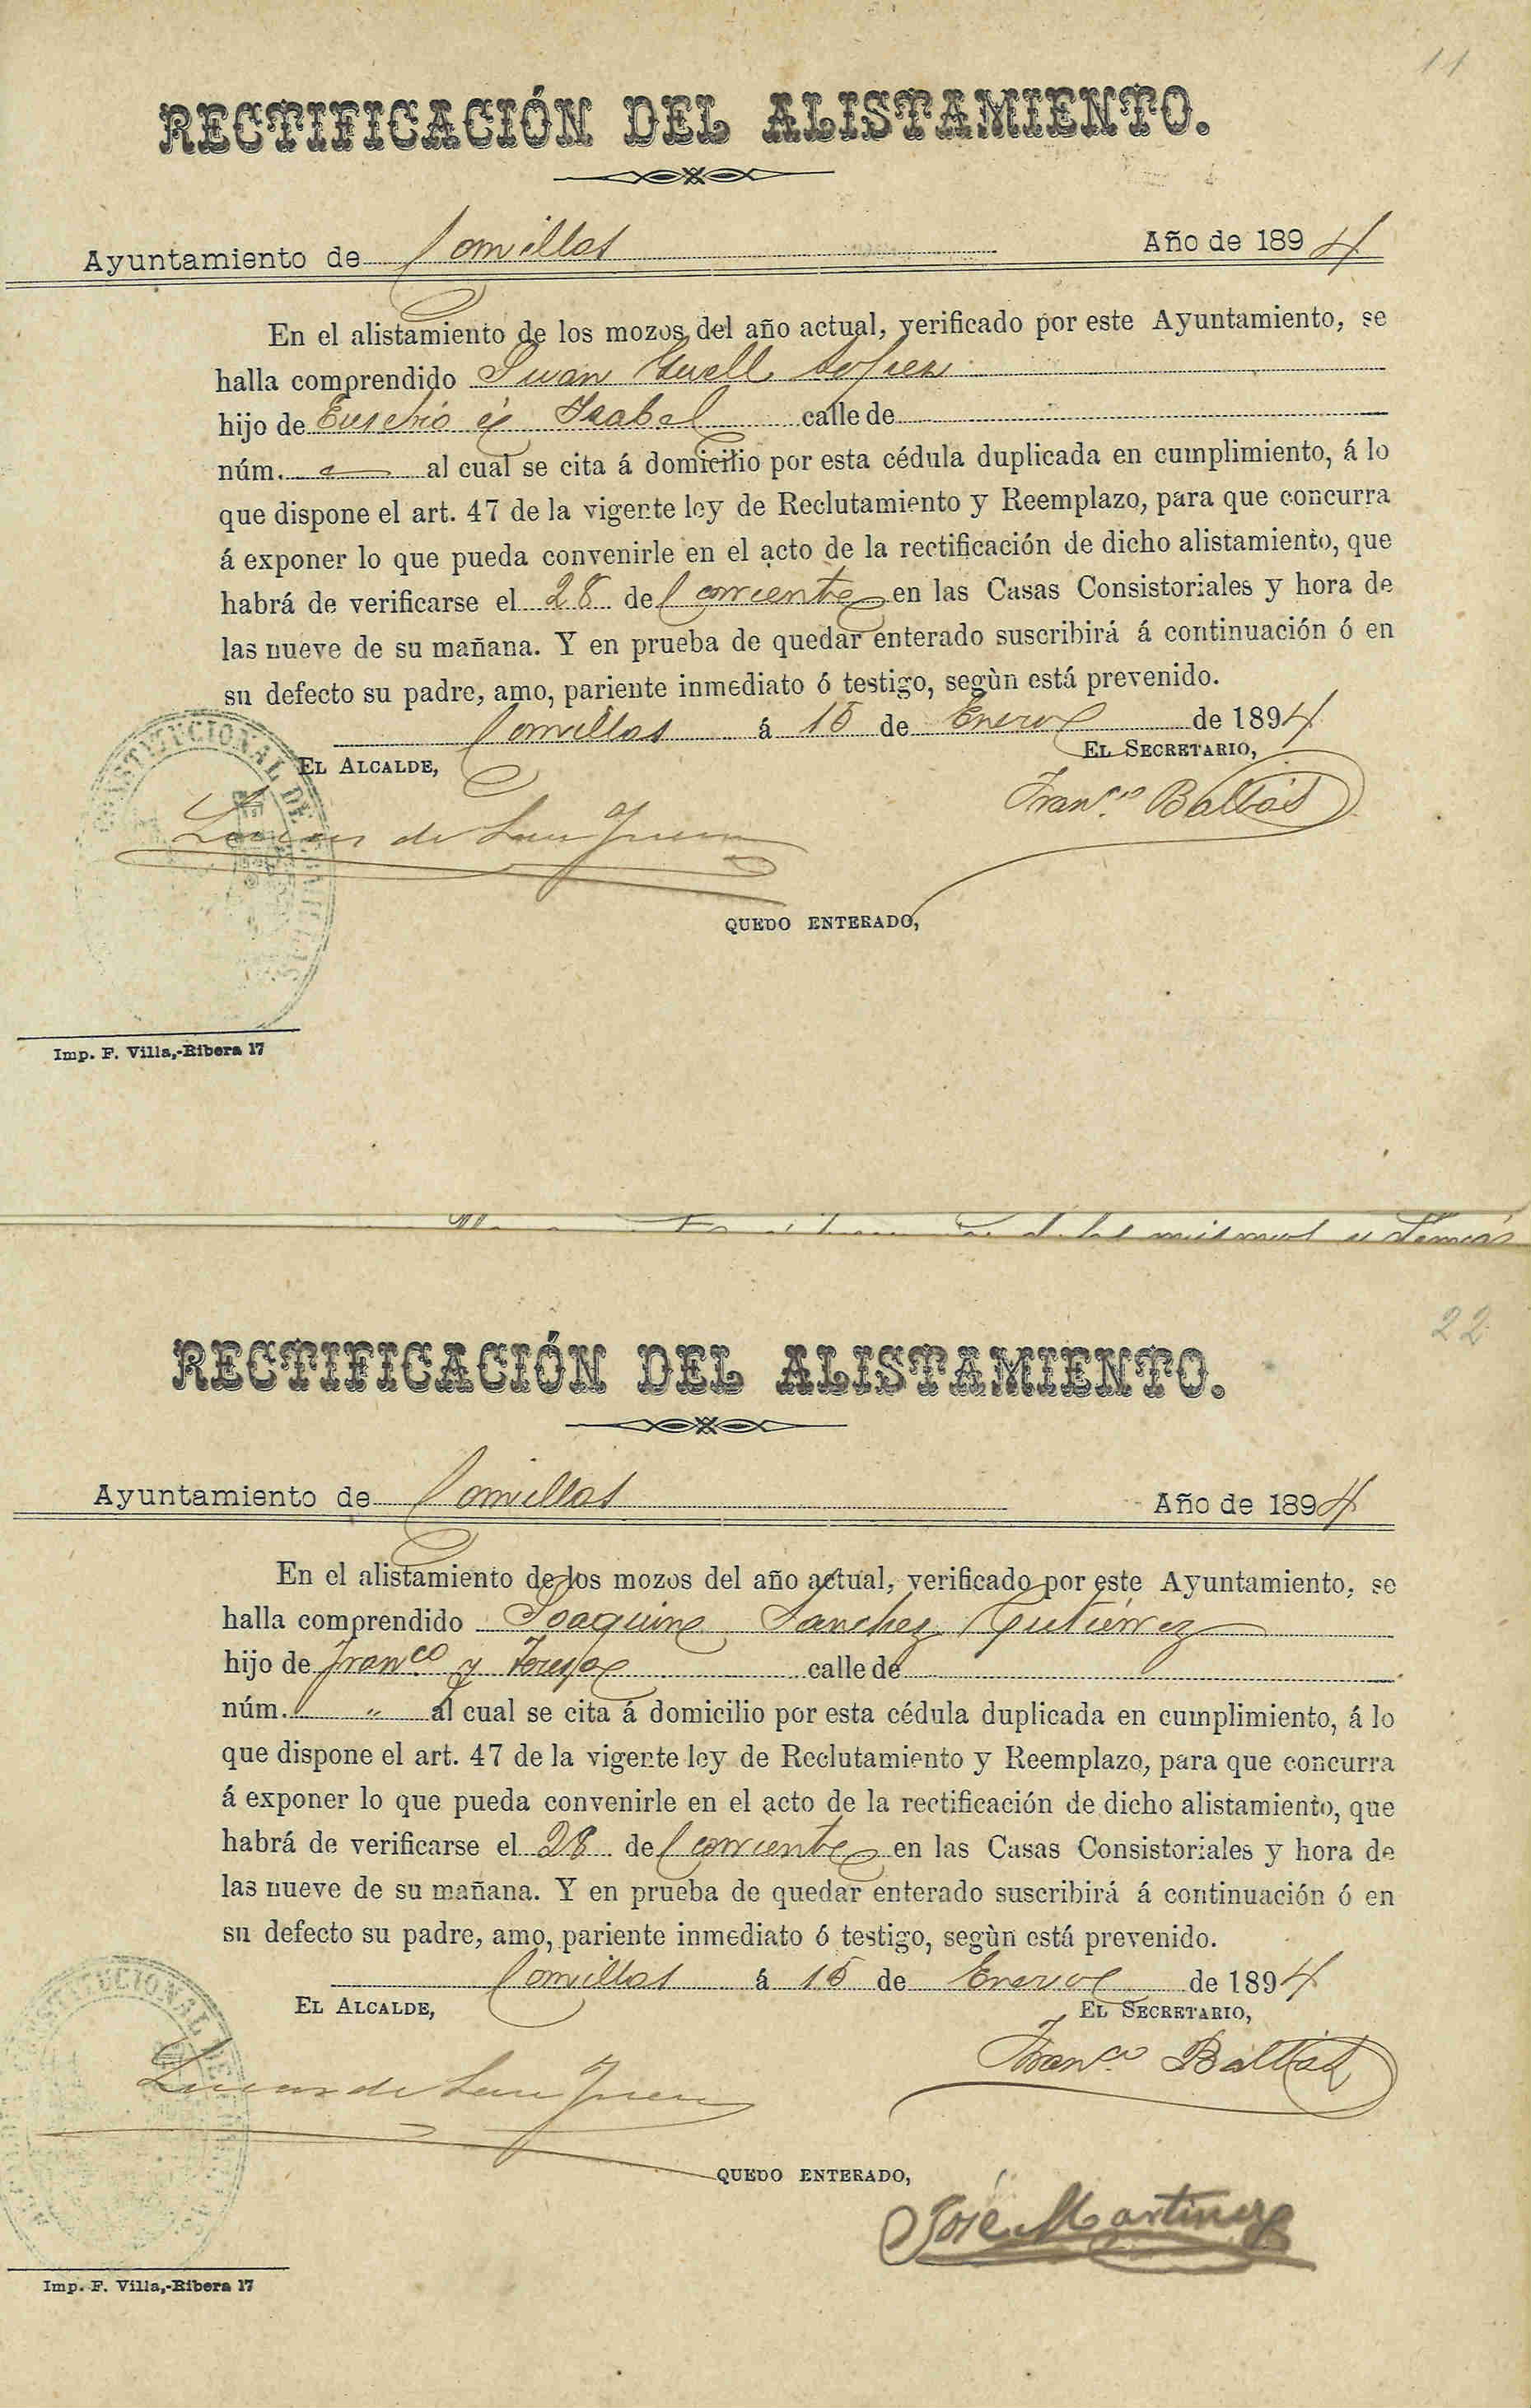 11
RECTIFICACIÓN DEL ALISTAMIENTO.
Ayuntamiento de Comillas Año de 1894
En el alistamiento de los mozos del año actual, verificado por este Ayuntamiento, se
halla comprendido Juan Güell López
hijo de Eusebio é Isabel calle de
núm. al cual se cita á domicilio por esta cédula duplicada en cumplimiento, á lo
que dispone el art. 47 de la vigente ley de Reclutamiento y Reemplazo, para que concurra
á exponer lo que pueda convenirle en el acto de la rectificación de dicho alistamiento, que
habrá de verificarse el 28 del corriente en las Casas Consistoriales y hora de
las nueve de su mañana. Y en prueba de quedar enterado suscribirá á continuación ó en
su defecto su padre, amo, pariente inmediato ó testigo, segùn está prevenido.
Comillas á 15 de Enero de 1894
EL ALCALDE, EL SECRETARIO,
CONSTITUCIONAL DE
Franco Balbás
Lucas de San Juan
QUEDO ENTERADO,
Imp. F. Villa,-Ribera 17
de los mismos y demás
22
RECTIFICACIÓN DEL ALISTAMIENTO.
Ayuntamiento de Comillas Año de 1894
En el alistamiento de los mozos del año actual, verificado por este Ayuntamiento, se
halla comprendido Joaquin Sanchez Gutiérrez
hijo de Franco y Teresa calle de
núm. " al cual se cita á domicilio por esta cédula duplicada en cumplimiento, á lo
que dispone el art. 47 de la vigente ley de Reclutamiento y Reemplazo, para que concurra
á exponer lo que pueda convenirle en el acto de la rectificación de dicho alistamiento, que
habrá de verificarse el 28 del corriente en las Casas Consistoriales y hora de
las nueve de su mañana. Y en prueba de quedar enterado suscribirá á continuación ó en
su defecto su padre, amo, pariente inmediato ó testigo, segùn está prevenido.
Comillas á 15 de Enero de 1894
EL ALCALDE, EL SECRETARIO,
CONSTITUCIONAL
Franco Balbás
Lucas de San Juan
QUEDO ENTERADO,
José Martinez
Imp. F. Villa,-Ribera 17